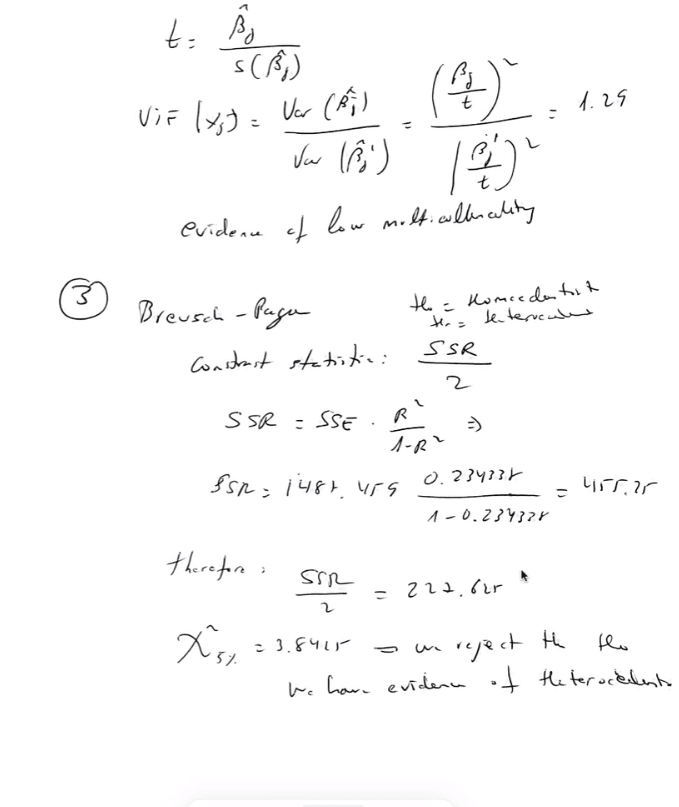 t = β̂j / s(β̂j)
ViF (xj) = Var (β̂j) / Var (β̂j') = (βj / t)² / (βj' / t)² = 1.29
evidence of low multicollineality
③ Breusch - Pagan
Ho = Homocedasticit
H1 =
Constrast statistic: SSR / 2
SSR = SSE · R² / 1-R² ⇒
SSR = 1485.459 0.234335 / 1-0.234325 = 455.25
therefore: SSR / 2 = 227.625
χ²5% = 3.8415 ⇒ we reject the Ho
We have evidence of Heterocedast